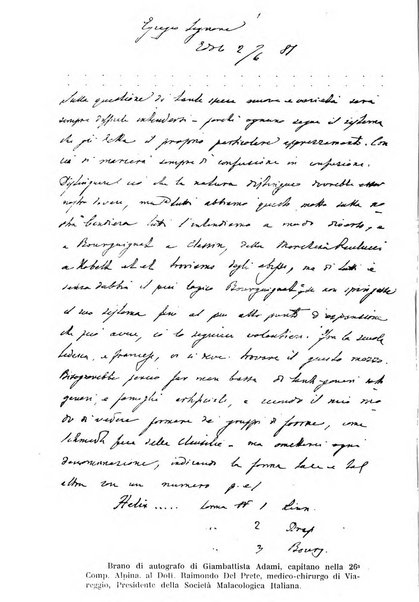 Egregio Signore
Edolo 2/6 81
Sulla questione di tante specie nuove e varietà sarà
sempre difficile intendersi – perchè ognuno segue il sistema
che gli detta il proprio particolare apprezzamento. Con
ciò si marcerà sempre di confusione in confusione.
Distinguere ciò che la natura distingue dovrebbe esser
nostro dovere, ma tutti abbiamo questo motto sulla no
stra bandiera tutti l'intendiamo a modo diverso, e
a Bourguignat a Clessin, dalla Marchesa Paulucci
a Kobelt et. et. troviamo degli abissi, ma di tutti è
senza dubbio il più logico Bourguignat, se non spingesse
il suo sistema fino al più alto punto di separazione
che può avere, io lo seguirei volontieri. Fra la scuola
tedesca, e francese, vi si deve trovare il giusto mezzo.
Bisognerebbe perciò far man bassa di tanti generi sotto
generi, e famiglie artificiali, e secondo il mio mo
do di vedere formare dei gruppi di forme, come
Schmidt fece delle Clausilie – ma omettere ogni
denominazione, indicando la forma tale e tal
altra con un numero p. es.
Helix ..... forma N° 1 Linn.
2 Drap
3 Bourg.
Brano di autografo di Giambattista Adami, capitano nella 26ª
Comp. Alpina, al Dott. Raimondo Del Prete, medico-chirurgo di Via-
reggio, Presidente della Società Malacologica Italiana.